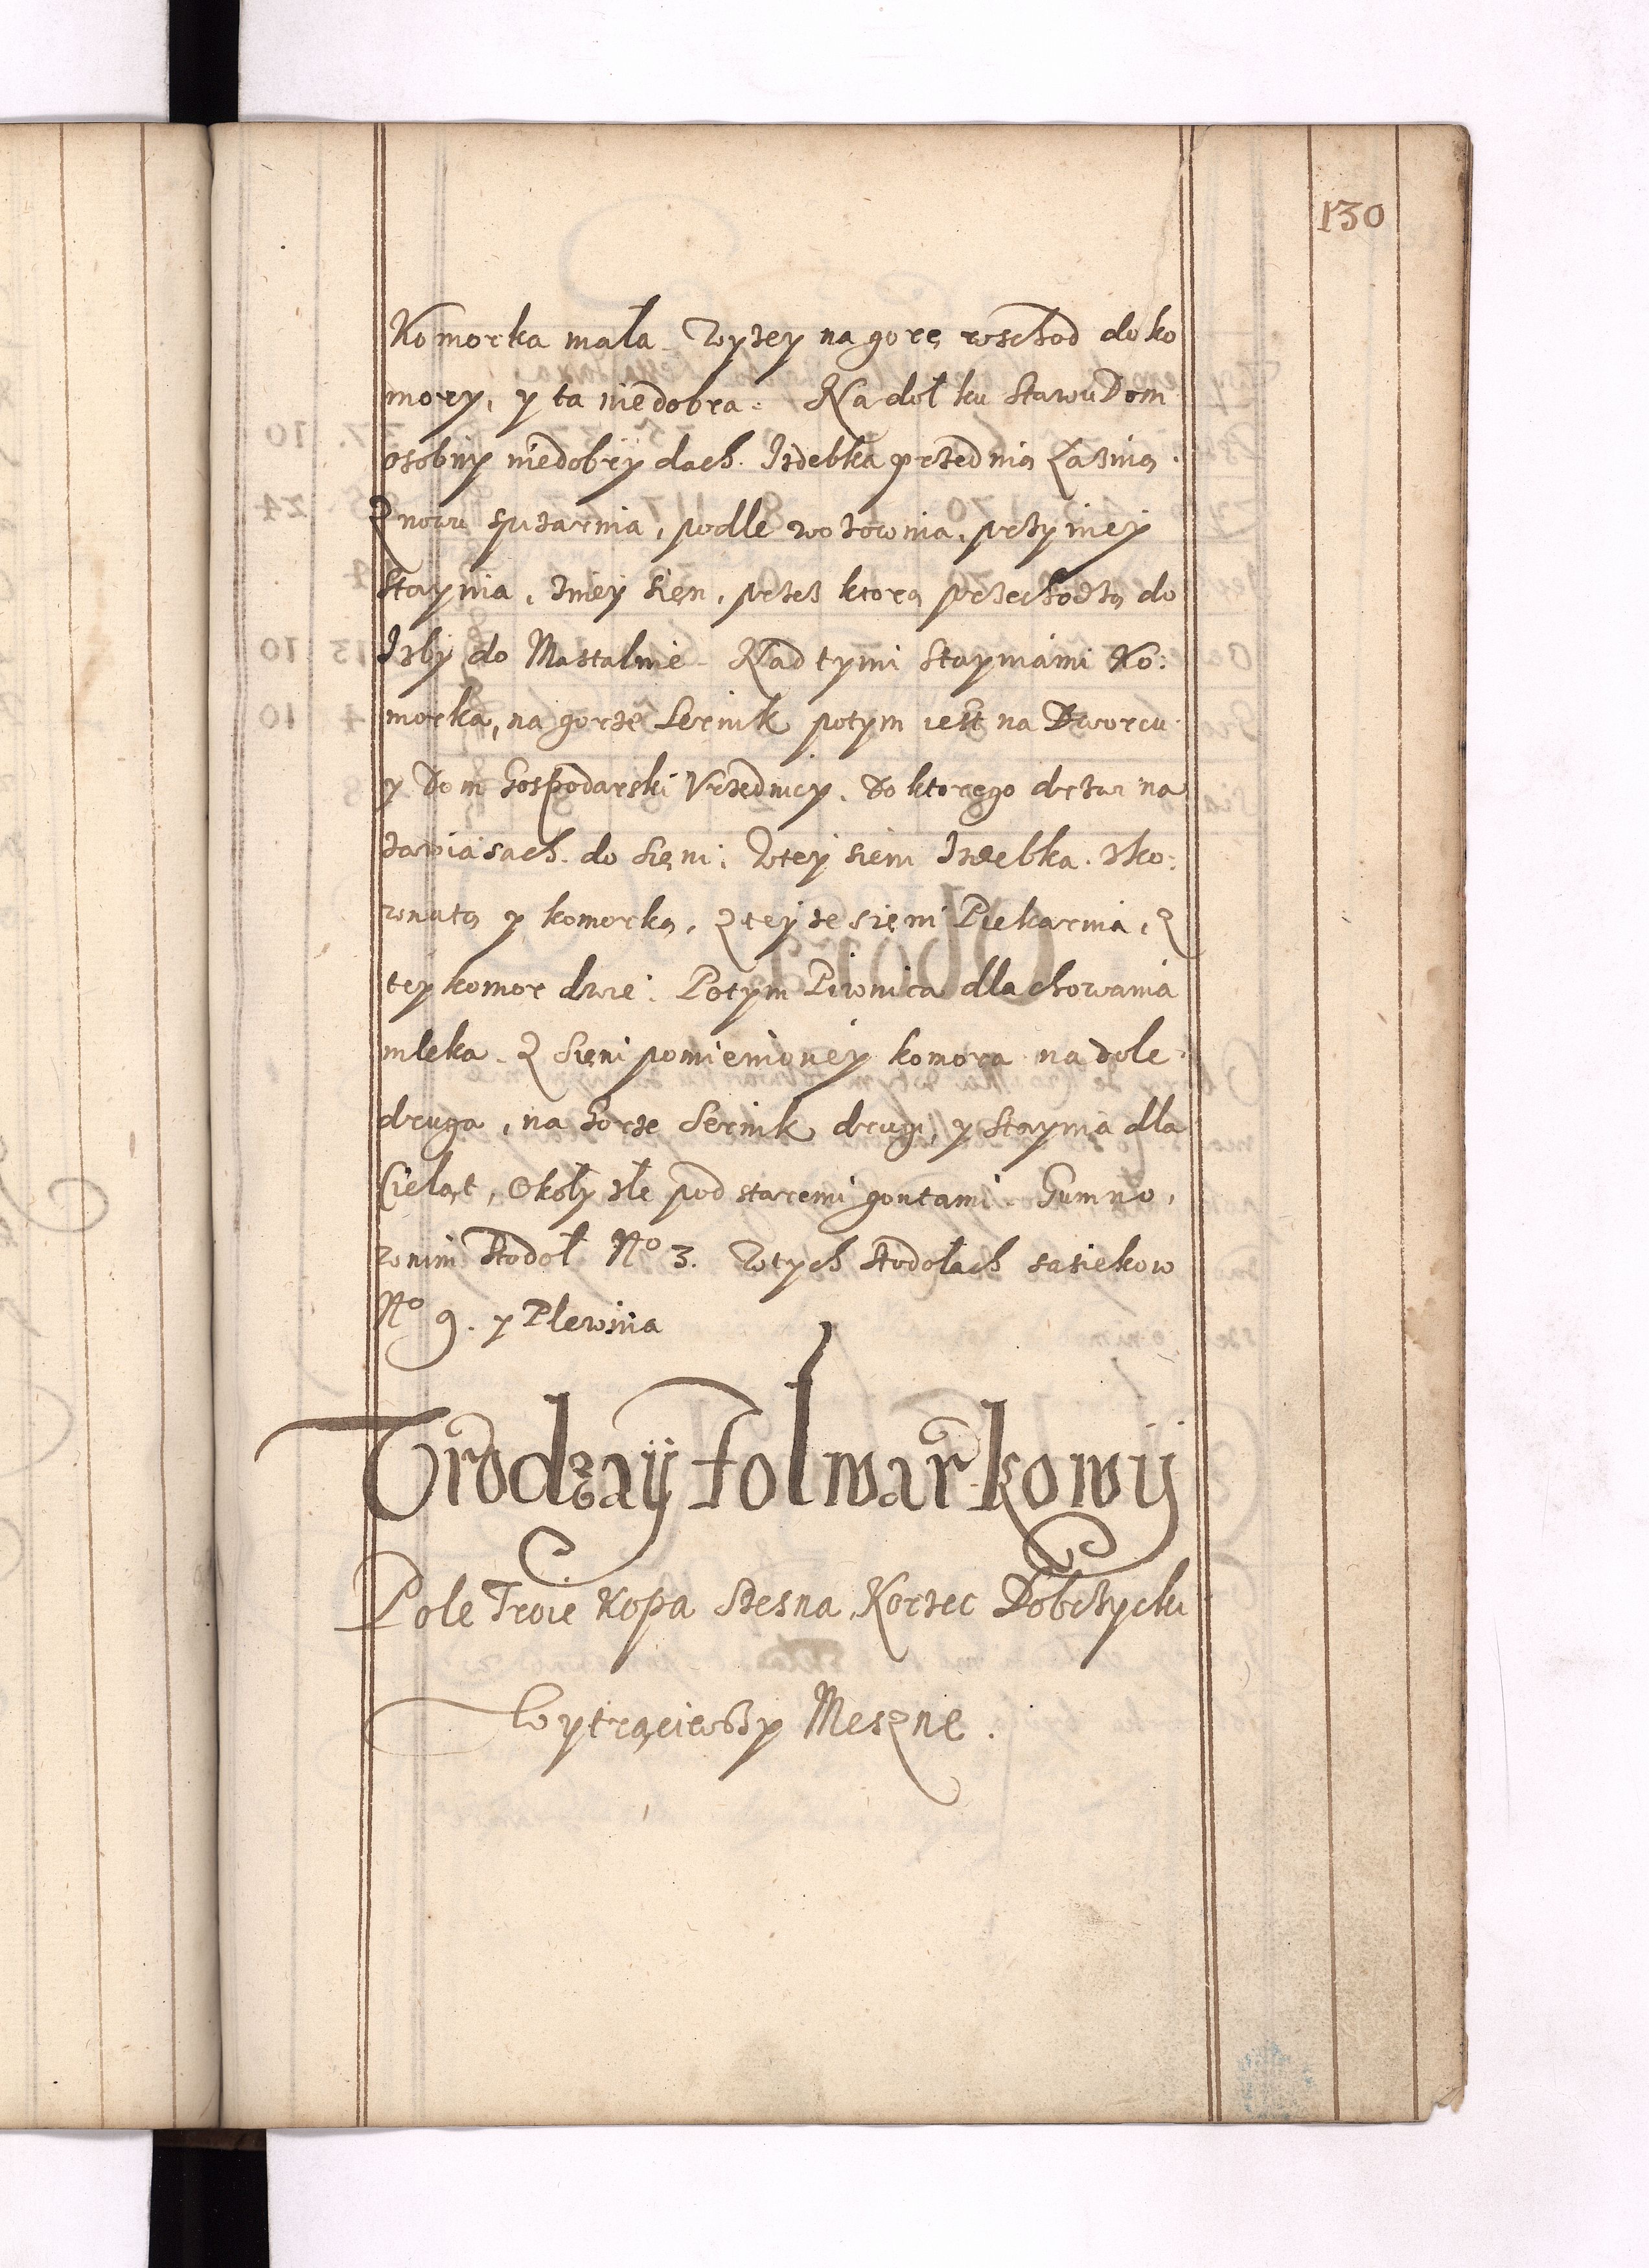 130
Komorka mała. Wyzey na gorę wschod do ko
mory, y ta niedobra. Na doł ku Stawu Dom
osobny niedobry dach. Izdebka przednia Łaznia.
Znowu spizarnia, podle wozownia, przy niey
Staynia, z niey sień, przez ktorą przechodzą do
Izby do Mastalnie. Nad tymi Stayniami Ko:
morka, na gorze Sernik potym iest na Dworcu
y Dom Gospodarski Vrzedniczy. Do ktorego drzwi na
zawiasach do sieni. W tey sieni Izdebka. z ko:
y komorką, z tey ze sieni Piekarnia, z
tey komor dwie. Potym Piwnica dla chowania
mleka. Z sieni pomienioney komora na dole
druga, na gorze Sernik drugi, y Staynia dla
Cieląt, Okoły złe pod staremi gontami. Gumno,
w nim Stodoł No 3. W tych Stodołach sasiekow
No 9. y Plewnia
Vrodzay Folwarkowy
Pole Troie Kopa Szesna Korzec Dobczycki
Wytrąciwszy Meszne.